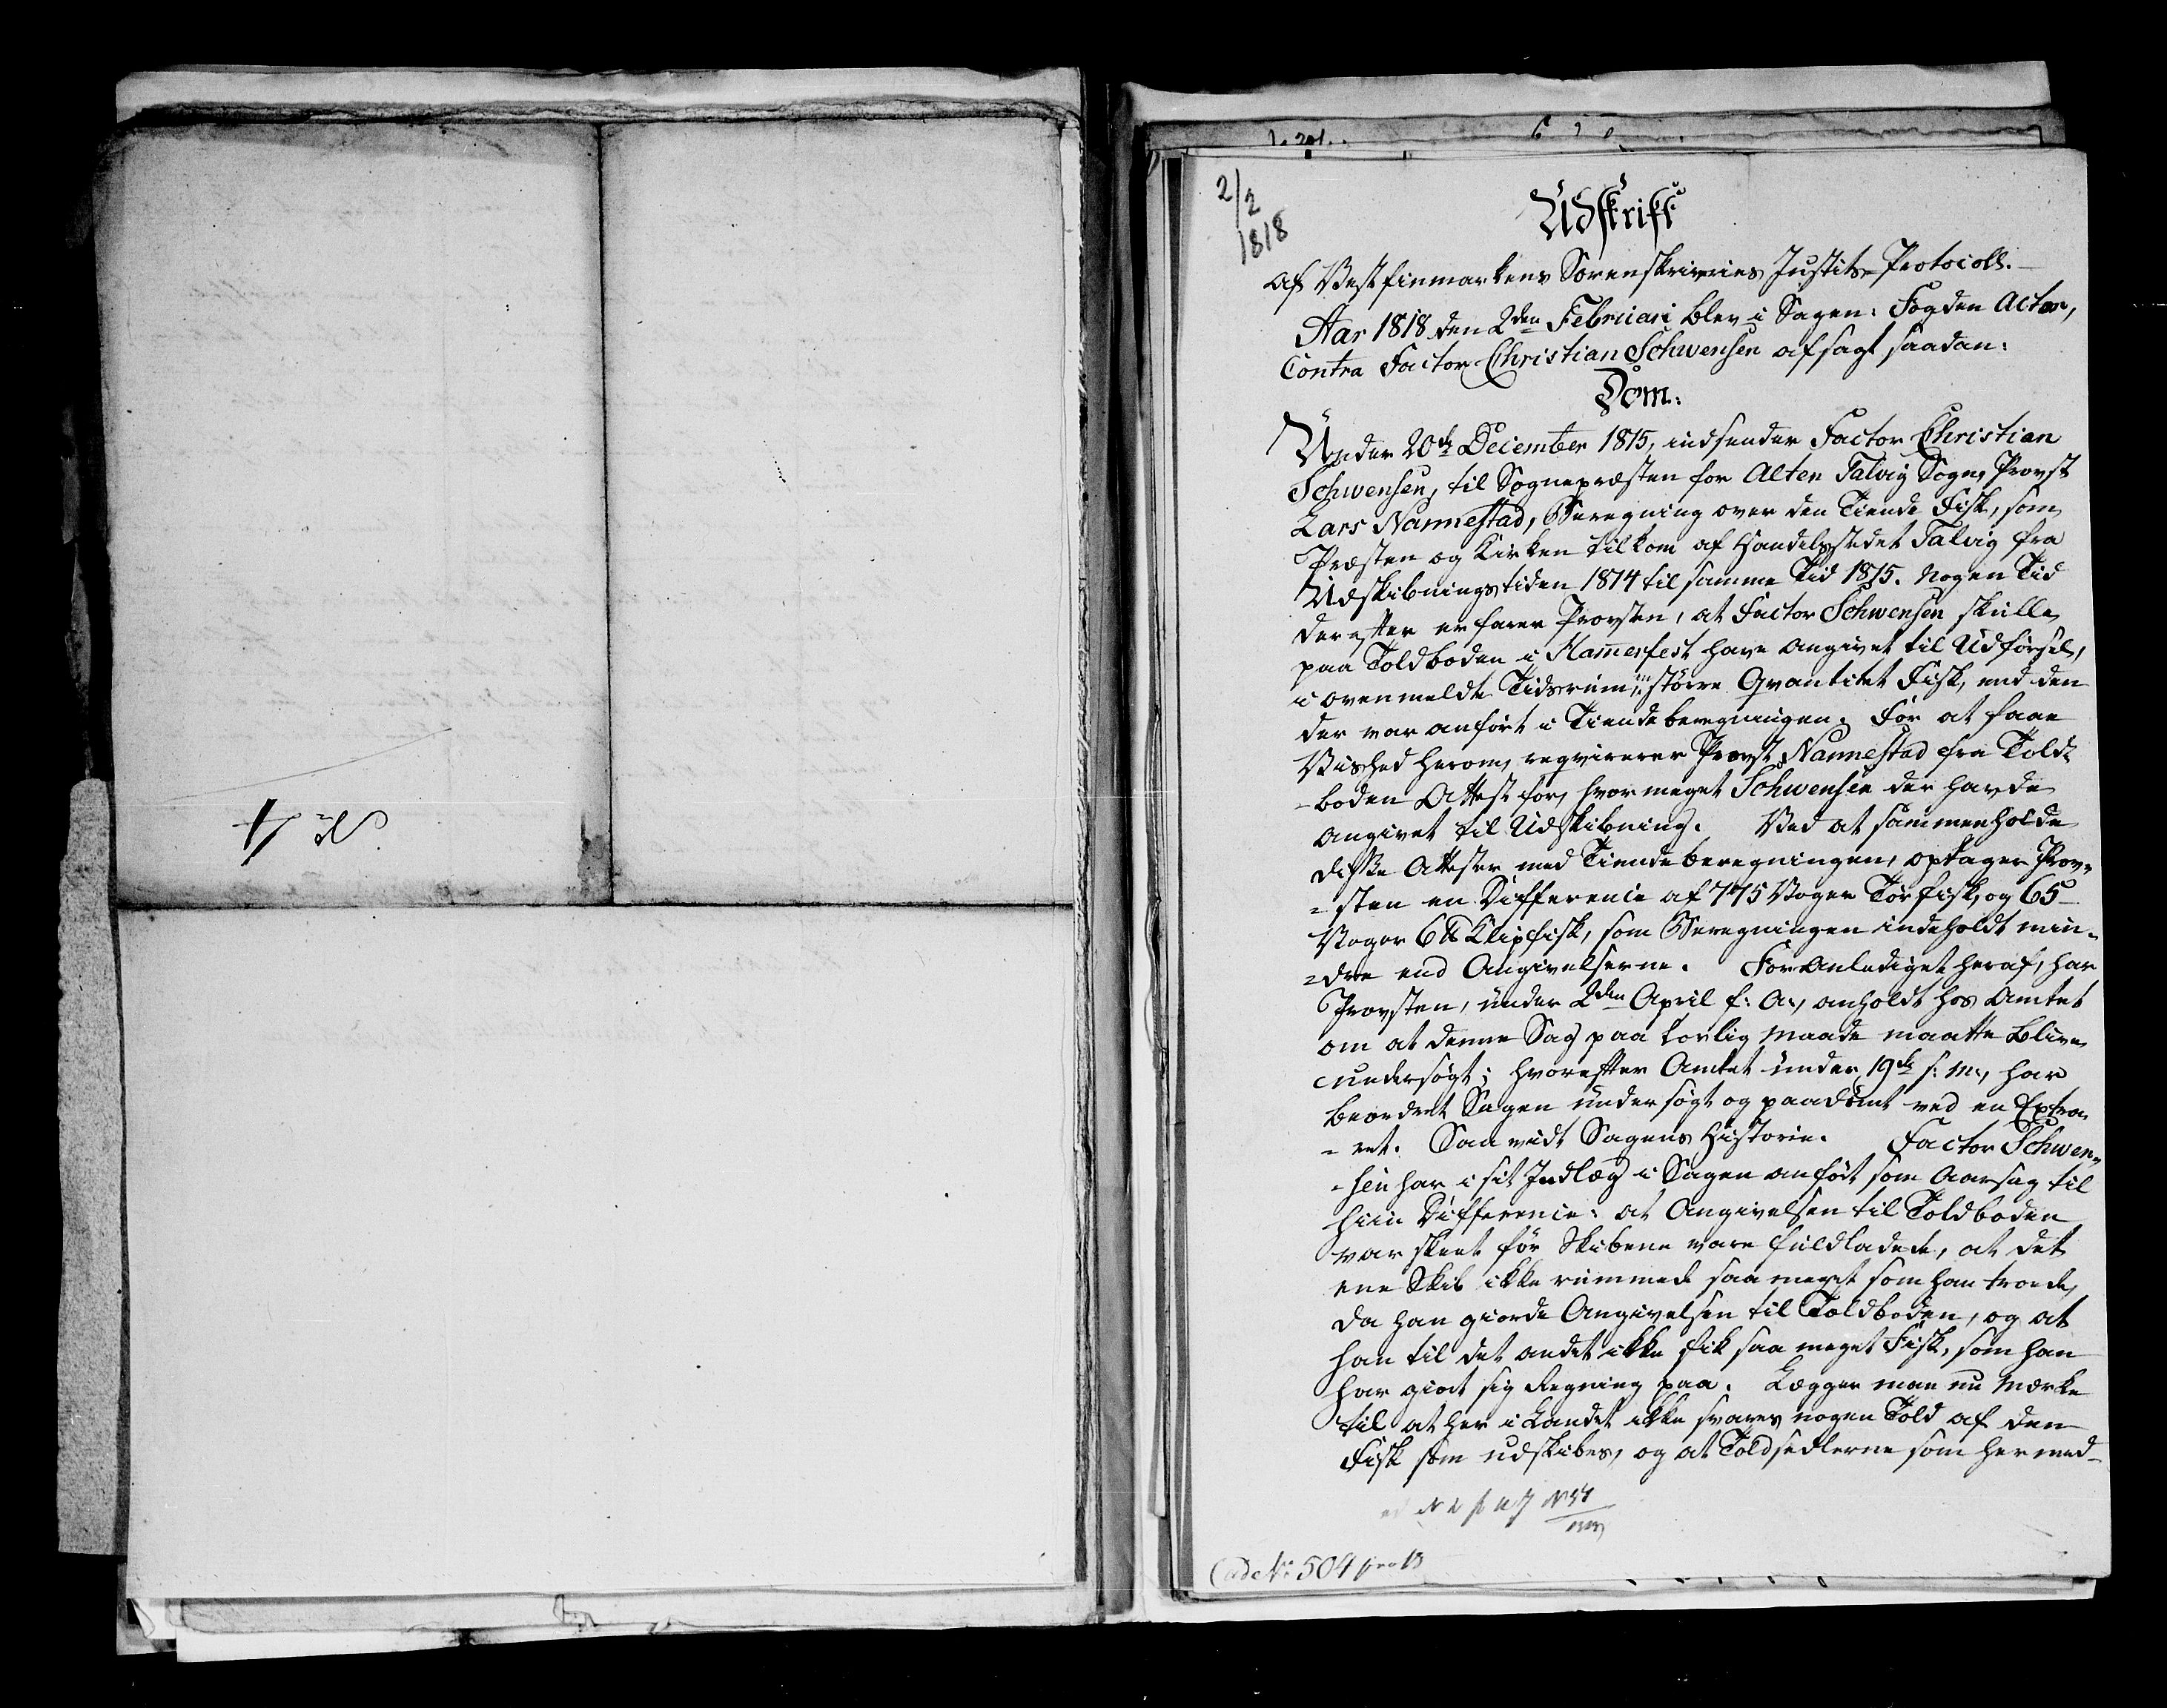 2/2
1818
Udskrift
af Vestfinmarkens Sorenskriveries Justits-Protocoll.
Aar 1818 den 2den Februari blev i Sagen: Fogden Actor,
Contra Factor Christian Schwensen afsagt saadan:
Dom:
Under 20de December 1815, indsender Factor Christian
Schwensen, til Sognepræsten for Alten Talvig Sogn, Provst
Lars Nannestad, Beregning over den Tiende Fisk, som
Præsten og Kirken tilkom af Handelsstedet Talvig fra
Udskibningstiden 1814 til samme Tid 1815. Nogen Tid
derefter erfarer Provsten, at Factor Schwensen skulle
paa Toldboden i Hamerfest have angivet til Udførsel,
i ovenmeldte Tidsrum, større Qvantitet Fisk, end den
der var anført i Tiendeberegningen. For at faae
Vished herom, reqvirerer Provst Nannestad fra Told-
-boden Attest for, hvor meget Schwensen der havde
angivet til Udskibning. Ved at sammenholde
disse Attester med Tiendeberegningen, optager Prov-
-sten en Difference af 775 Voger Tørfisk, og 65
Voger 6 ℔ Klipfisk, som Beregningen indeholdt min-
-dre end Angivelserne. Foranlediget heraf, har
Provsten, under 2den April f: A:, anholdt hos Amtet
om at denne Sag paa lovlig Maade maatte blive
undersøgt; hvorefter Amtet under 19de s: M:, har
beordret Sagen undersøgt og paadømt ved en Extra-
-ret. Saavidt Sagens Historie. Factor Schwen-
-sen har i sit Indlæg i Sagen anført som Aarsag til
hiin Difference: at Angivelsen til Toldboden
var skeet før Skibene vare fuldladede, at det
ene Skib ikke rummede saa meget som han troede,
da han giorde Angivelsen til Toldboden, og at
han til det andet ikke fik saa meget Fisk, som han
har giort sig Regning paa. Lægger man nu Mærke
til at her i Landet ikke svares nogen Told af den
Fisk som udskibes, og at Toldsedlerne som her med-
No 504